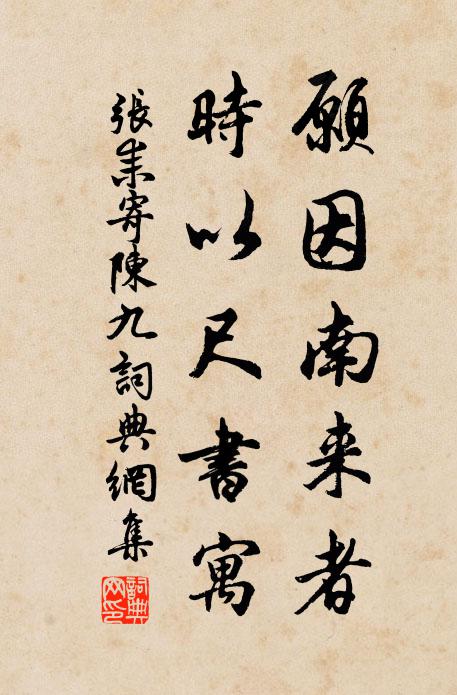 願因南来者
時以尺書寓
張耒寄陳九詞典網集
詞典
网印